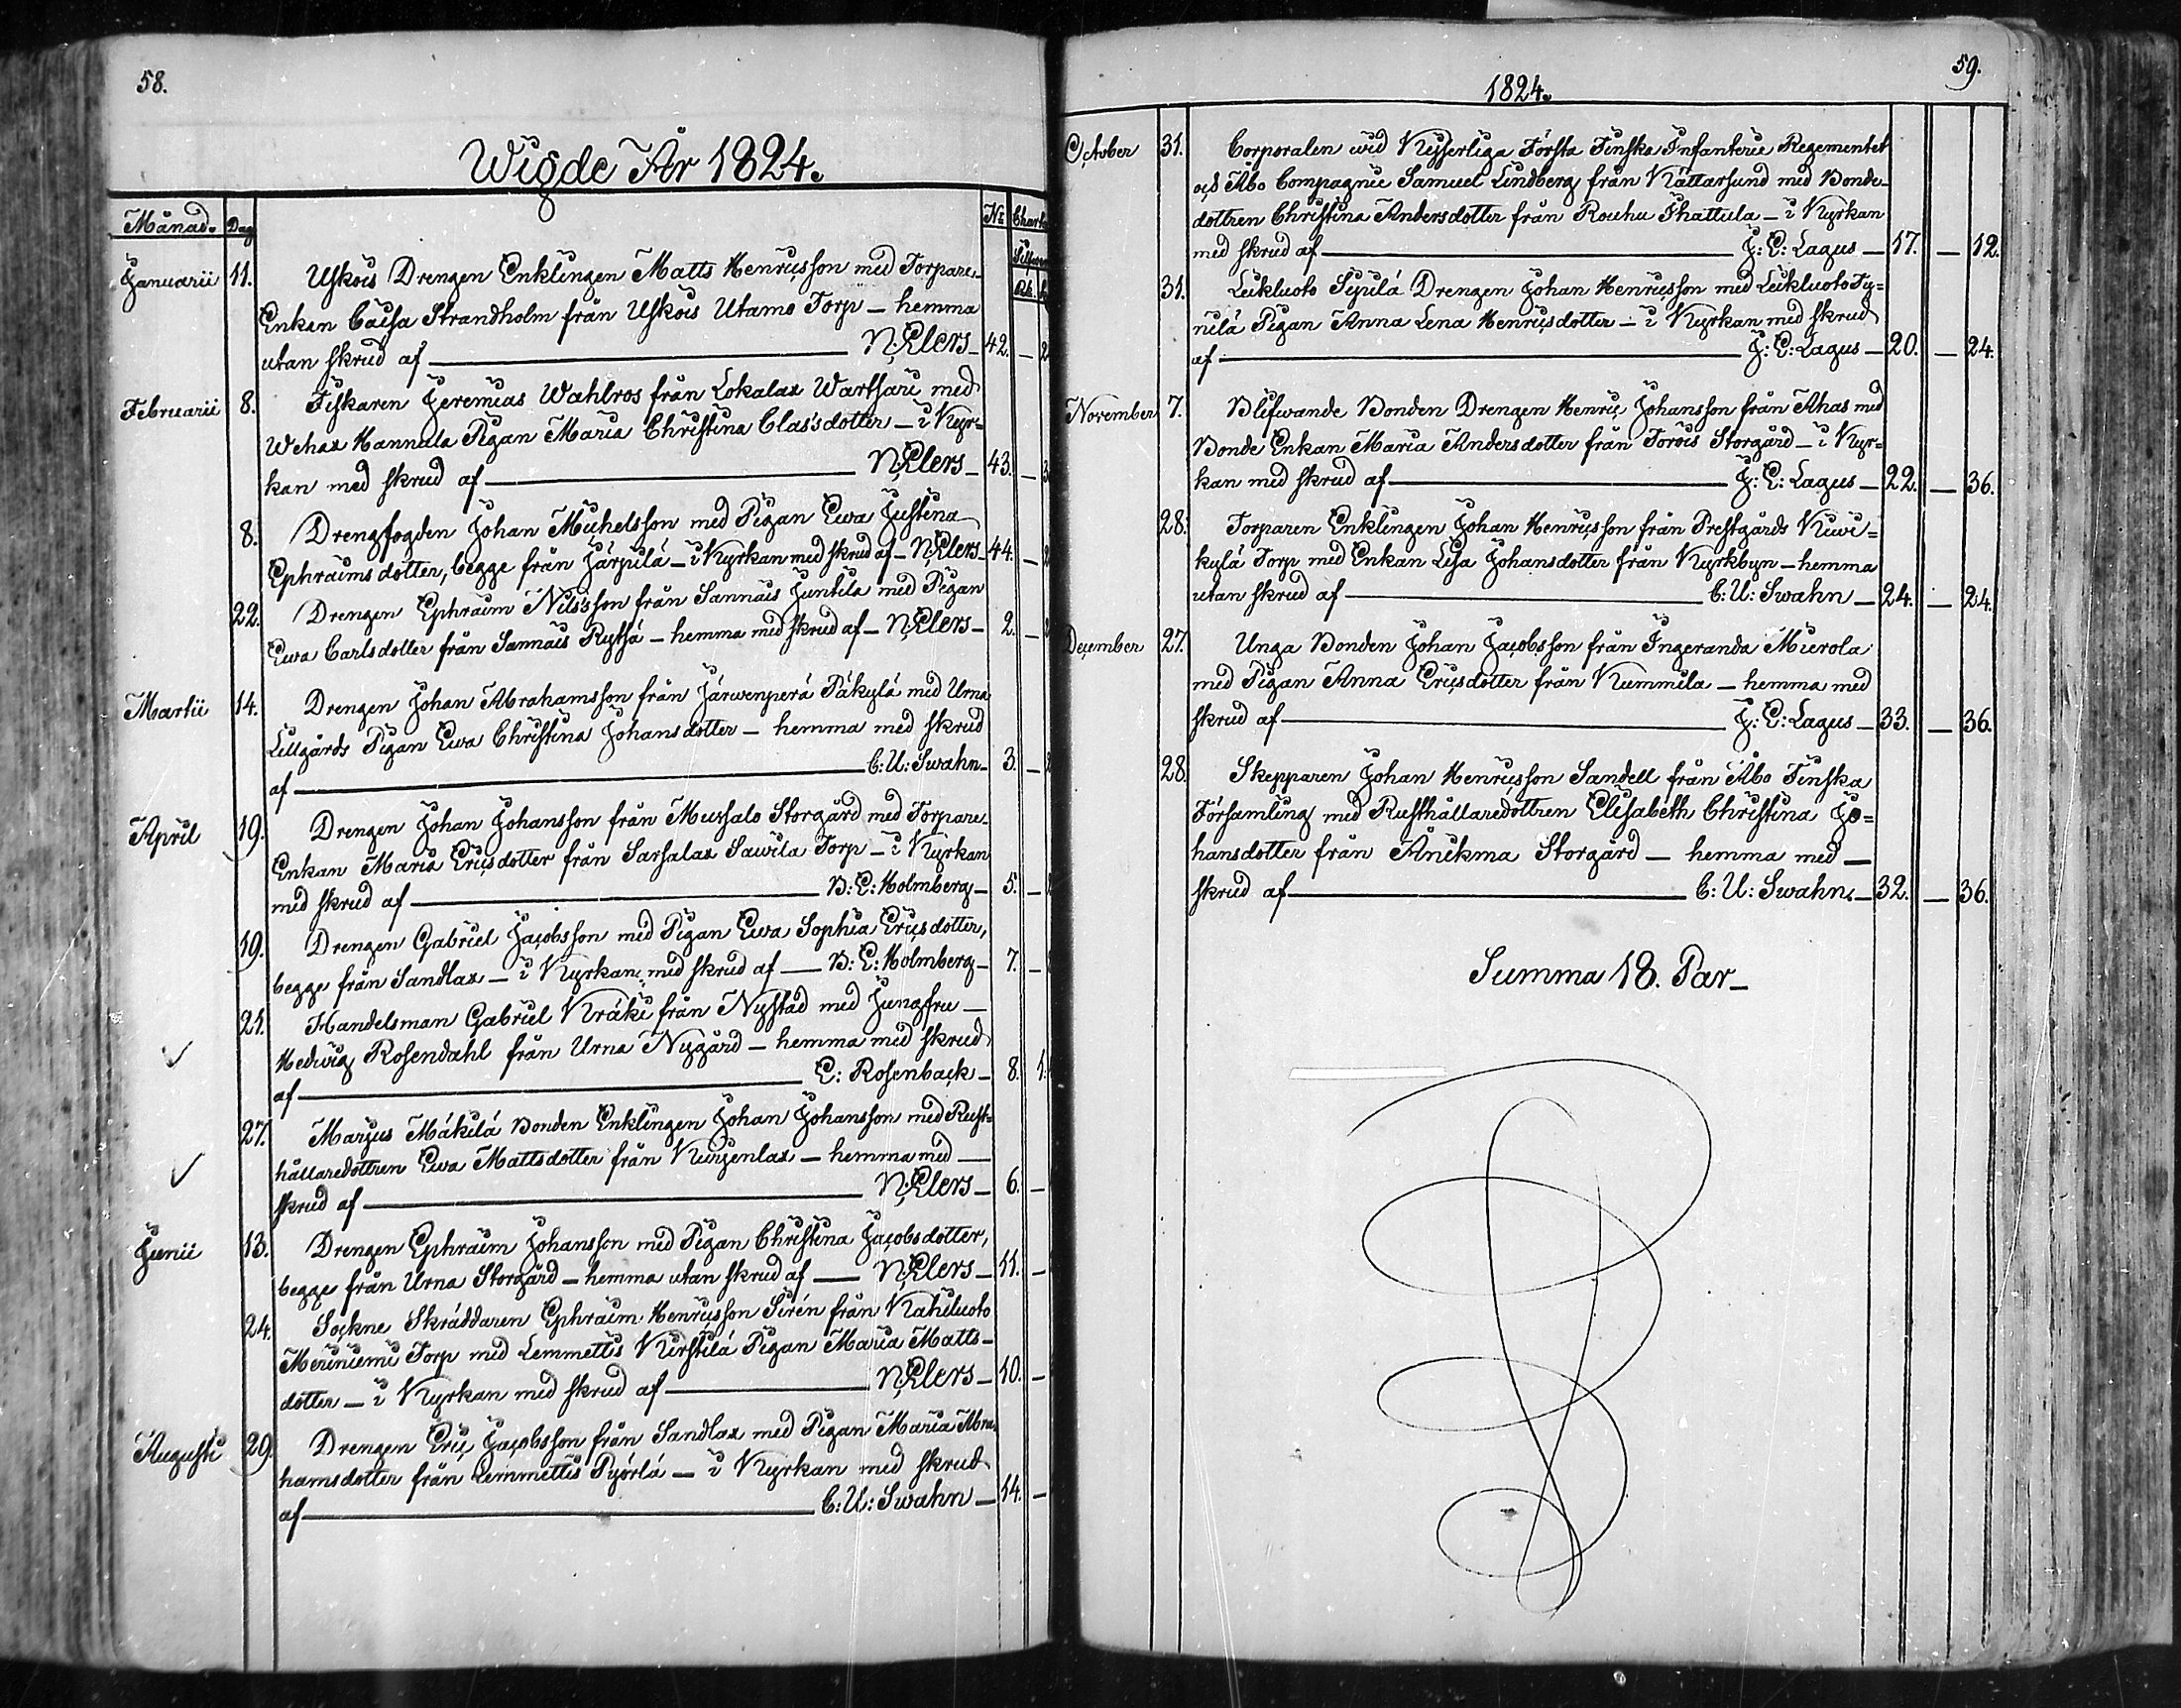 58.
Wigde År 1824.
Månad. Dag No Charta
Silfver
Rb. k
Januarii 11. Uskois Drengen Enklingen Matts Henricsson med Torpare-
Enkan Caisa Strandholm från Uskois Utamo Torp – hemma
utan skrud af — N. Elers – 42. – 2
Februarii 8. Fiskaren Jeremias Wahlros från Lokalax Wartsari med
Wehax Hannula Pigan Maria Christina Clas'sdotter – i Kyr-
kan med skrud af — N. Elers – 43. – 3
8. Drengfogden Johan Michelsson med Pigan Ewa Justina
Ephraims dotter, begge från Järpilä – i Kyrkan med skrud af – N. Elers – 44. – 2
22. Drengen Ephraim Nils'sson från Sannais Juntila med Pigan
Ewa Carlsdotter från Sannais Rytsä – hemma med skrud af – N. Elers – 2. – 2
Martii 14. Drengen Johan Abrahamsson från Järwenperä Päkylä med Urna
Lillgårds Pigan Ewa Christina Johansdotter – hemma med skrud
af — C: U: Swahn – 3. – 2
April 19. Drengen Johan Johansson från Mussalo Storgård med Torpare-
Enkan Maria Ericsdotter från Sarsalax Sawila Torp – i Kyrkan
med skrud af — B: E: Holmberg – 5. – 2
19. Drengen Gabriel Jacobsson med Pigan Ewa Sophia Ericsdotter,
begge från Sandlax – i Kyrkan med skrud af — B: E: Holmberg – 7. –
21. Handelsman Gabriel Kräki från Nystad med Jungfru –
Hedwig Rosendahl från Urna Nygård – hemma med skrud
af — E: Rosenback – 8. 1.
27. Marjus Mäkilä Bonden Enklingen Johan Johansson med Rust-
hållaredottren Ewa Mattsdotter från Kurjenlax – hemma med —
skrud af — N. Elers – 6. –
Junii 13. Drengen Ephraim Johansson med Pigan Christina Jacobsdotter,
begge från Urna Storgård – hemma utan skrud af — N. Elers – 11. –
24. Sockne Skräddaren Ephraim Henricsson Sirén från Kahiluoto
Meriniemi Torp med Lemmettis Kirstilä Pigan Maria Matts-
dotter – i Kyrkan med skrud af — N. Elers – 10. –
Augusti 29. Drengen Eric Jacobsson från Sandlax med Pigan Maria Abra-
hamsdotter från Lemmettis Pyörlä – i Kyrkan med skrud
af — C: U: Swahn – 14. –
59.
1824.
October 31. Corporalen wid Kejserliga Första Finska Infanterie Regementet
och Åbo Compagnie Samuel Lindberg från Kättarsund med Bonde-
dottren Christina Andersdotter från Rouhu Thattula – i Kyrkan
med skrud af — J: E: Lagus – 17. – 12.
31. Leikluoto Sipilä Drengen Johan Henricsson med Leikluoto Ty=
nilä Pigan Anna Lena Henricsdotter – i Kyrkan med skrud
af — J: E: Lagus – 20. – 24.
November 7. Blifwande Bonden Drengen Henric Johansson från Ahas med
Bonde Enkan Maria Andersdotter från Torois Storgård – i Kyr=
kan med skrud af — J: E: Lagus – 22. – 36.
28. Torparen Enklingen Johan Henricsson från Prestgårds Kiwi=
kylä Torp med Enkan Lisa Johansdotter från Kyrkbyn – hemma
utan skrud af — C: U: Swahn – 24. – 24.
December 27. Unga Bonden Johan Jacobsson från Ingeranda Mierola
med Pigan Anna Ericsdotter från Kummila – hemma med
skrud af — J: E: Lagus – 33. – 36.
28. Skepparen Johan Henricsson Sandell från Åbo Finska
Församling med Rusthållaredottren Elisabeth Christina Jo=
hansdotter från Änikma Storgård – hemma med –
skrud af — C: U: Swahn. – 32. – 36.
Summa 18. Par –